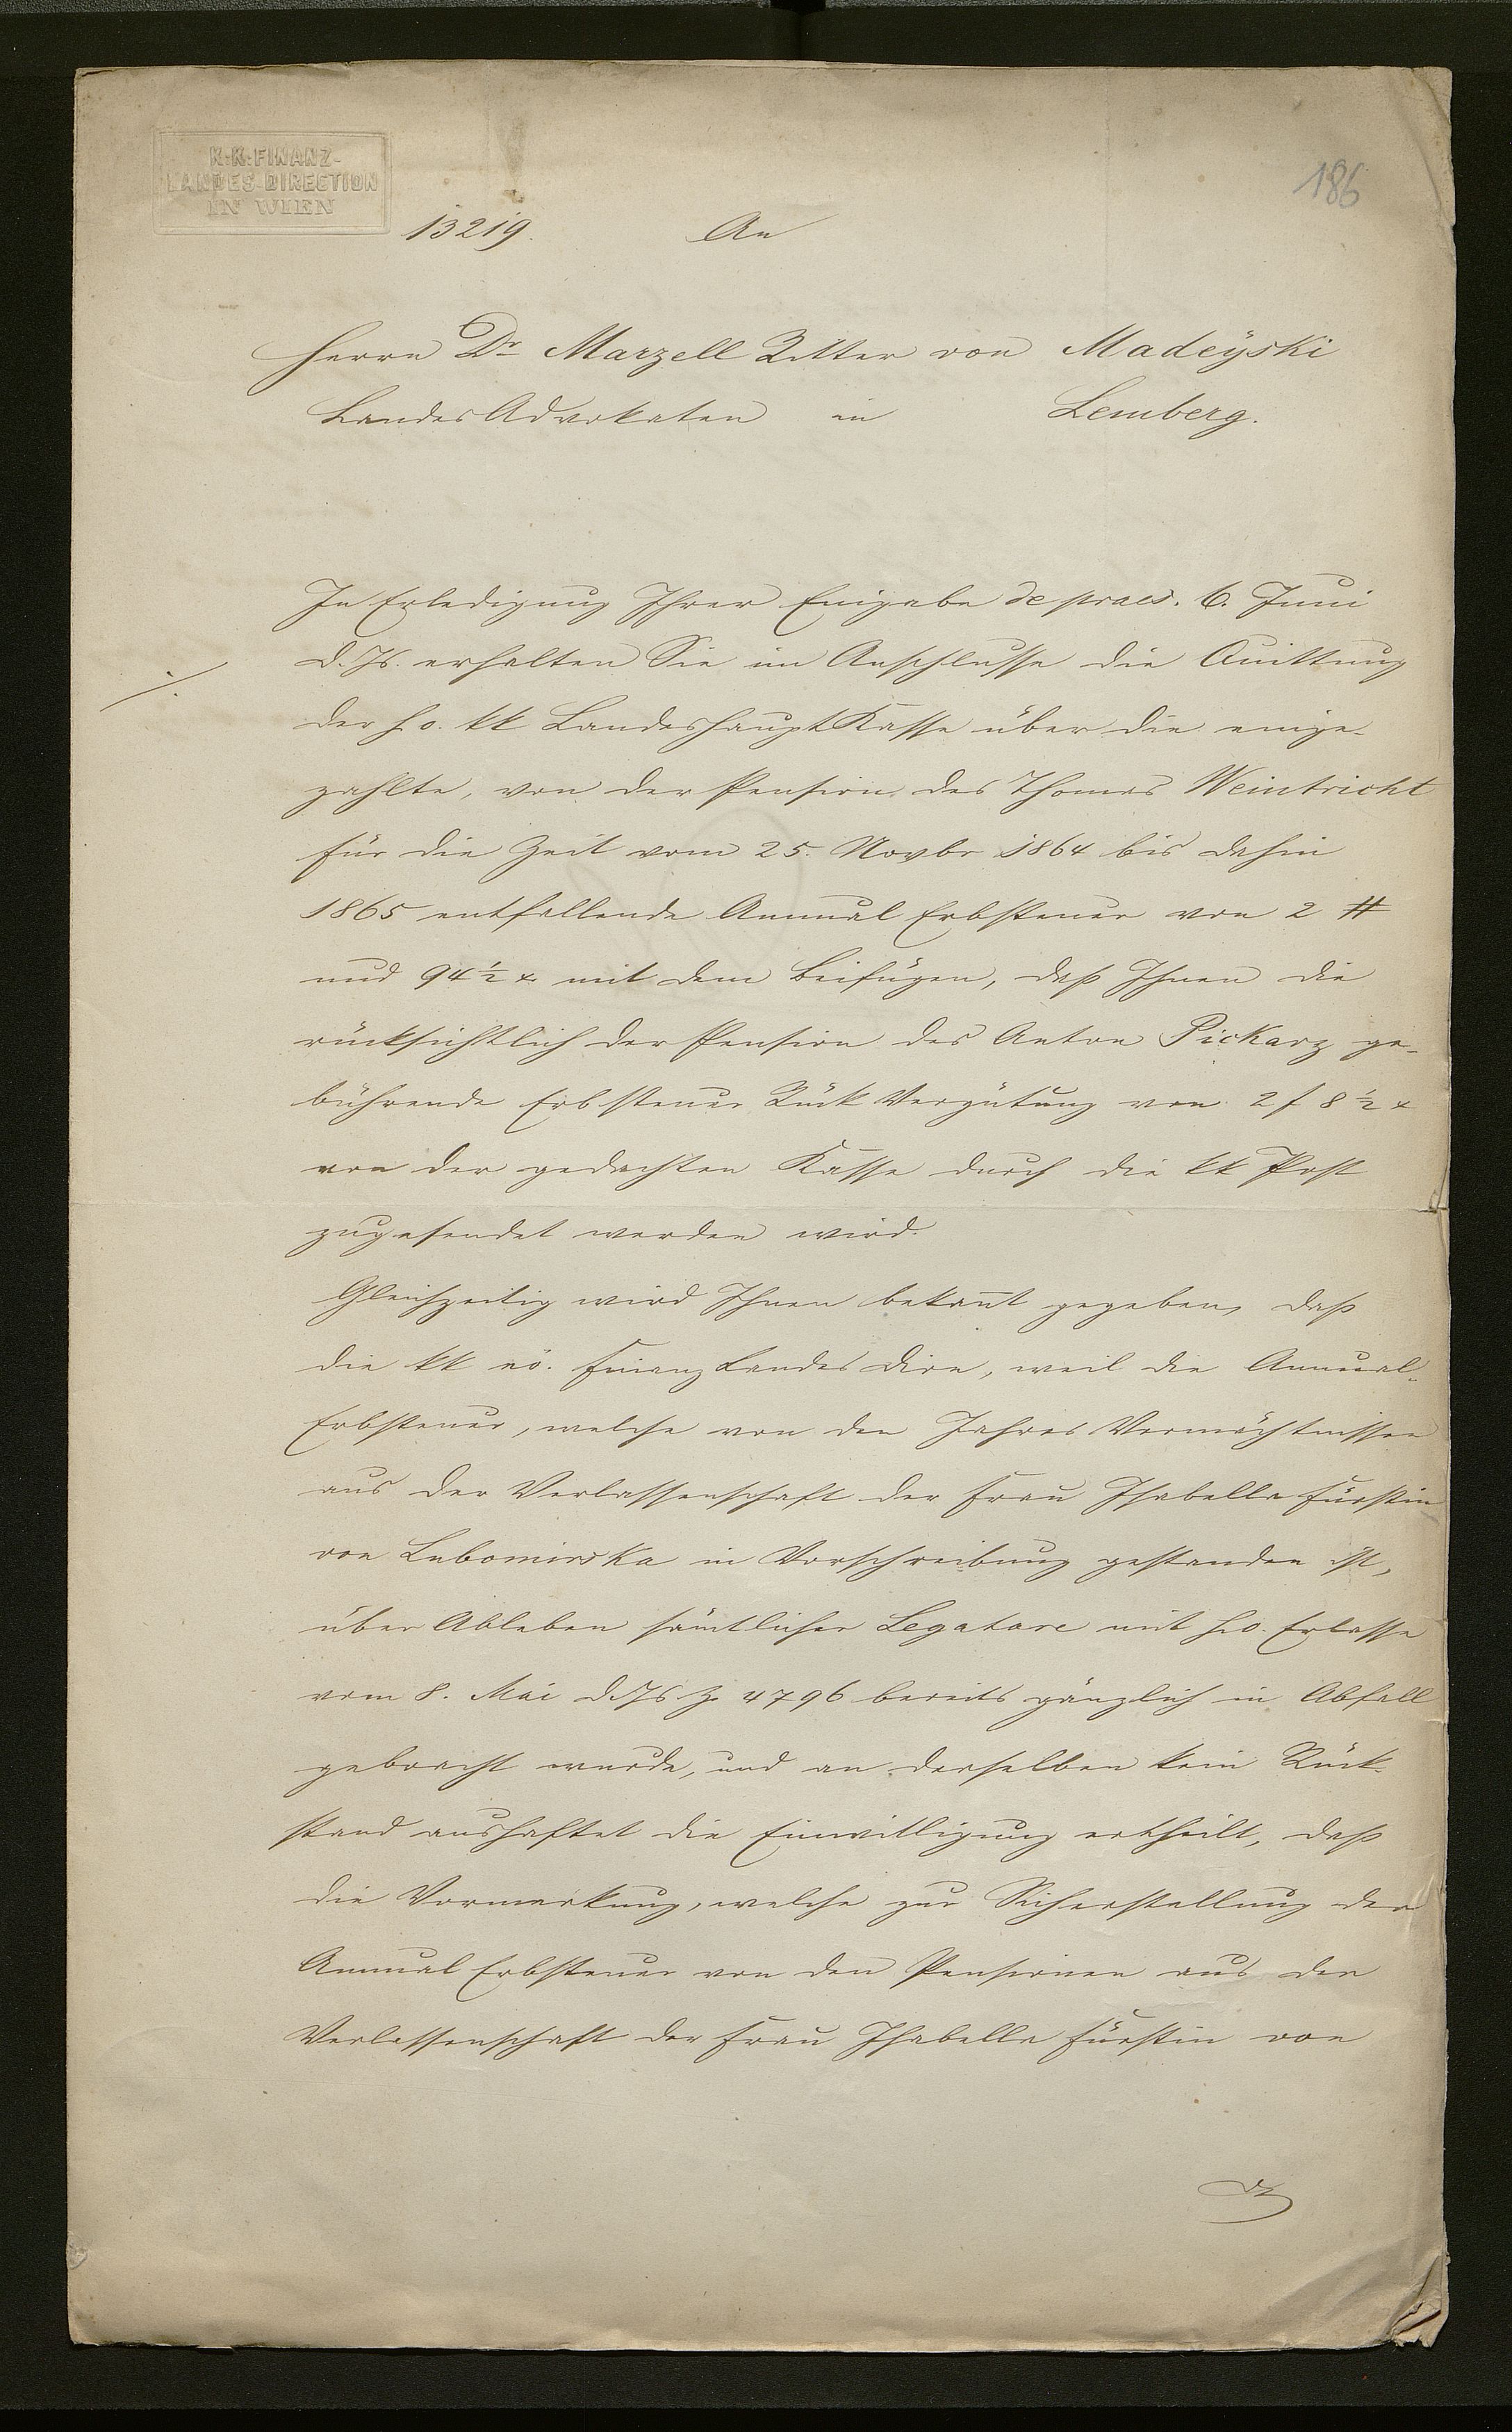 K:K:FINANZ-
LANDES-DIRECTION
IN WIEN
186
13219. An
Herrn Dr Marzell Ritter von Madeÿski
Landes Advokaten in Lemberg.
In Erledigung Ihrer Eingabe de praes. 6. Juni
d. Js. erhalten Sie im Anschlusse die Quittung
der h. o. kk Landeshaupt Kasse über die einge-
zahlte, von der Pension des Thomas Weintricht
für die Zeit vom 25. Novbr 1864 bis dahin
1865 entfallende Annual Erbsteuer von 2 #
und 94 ½ x mit dem Beifügen, daß Ihnen die
rücksichtlich der Pension des Anton Pickarz ge-
bührende Erbsteuer Rück Vergütung von 2 f 8 ½ x
von der gedachten Kasse durch die kk Post
zugesendet werden wird.
Gleichzeitig wird Ihnen bekannt gegeben, daß
die kk nö. Finanz Landes Dion, weil die Annual-
Erbsteuer, welche von den Jahres Vermächtnissen
aus der Verlassenschaft der Frau Isabella Fürstin
von Lubomirska in Vorschreibung gestanden ist,
über Ableben sämtlicher Legatare mit h. o. Erlasse
vom 8. Mai d. Js Z. 4796 bereits gänzlich in Abfall
gebracht wurde, und an derselben kein Rück-
stand aushaftet die Einwilligung ertheilt, daß
die Vormerkung, welche zur Sicherstellung der
Annual Erbsteuer von den Pensionen aus der
Verlassenschaft der Frau Isabella Fürstin von